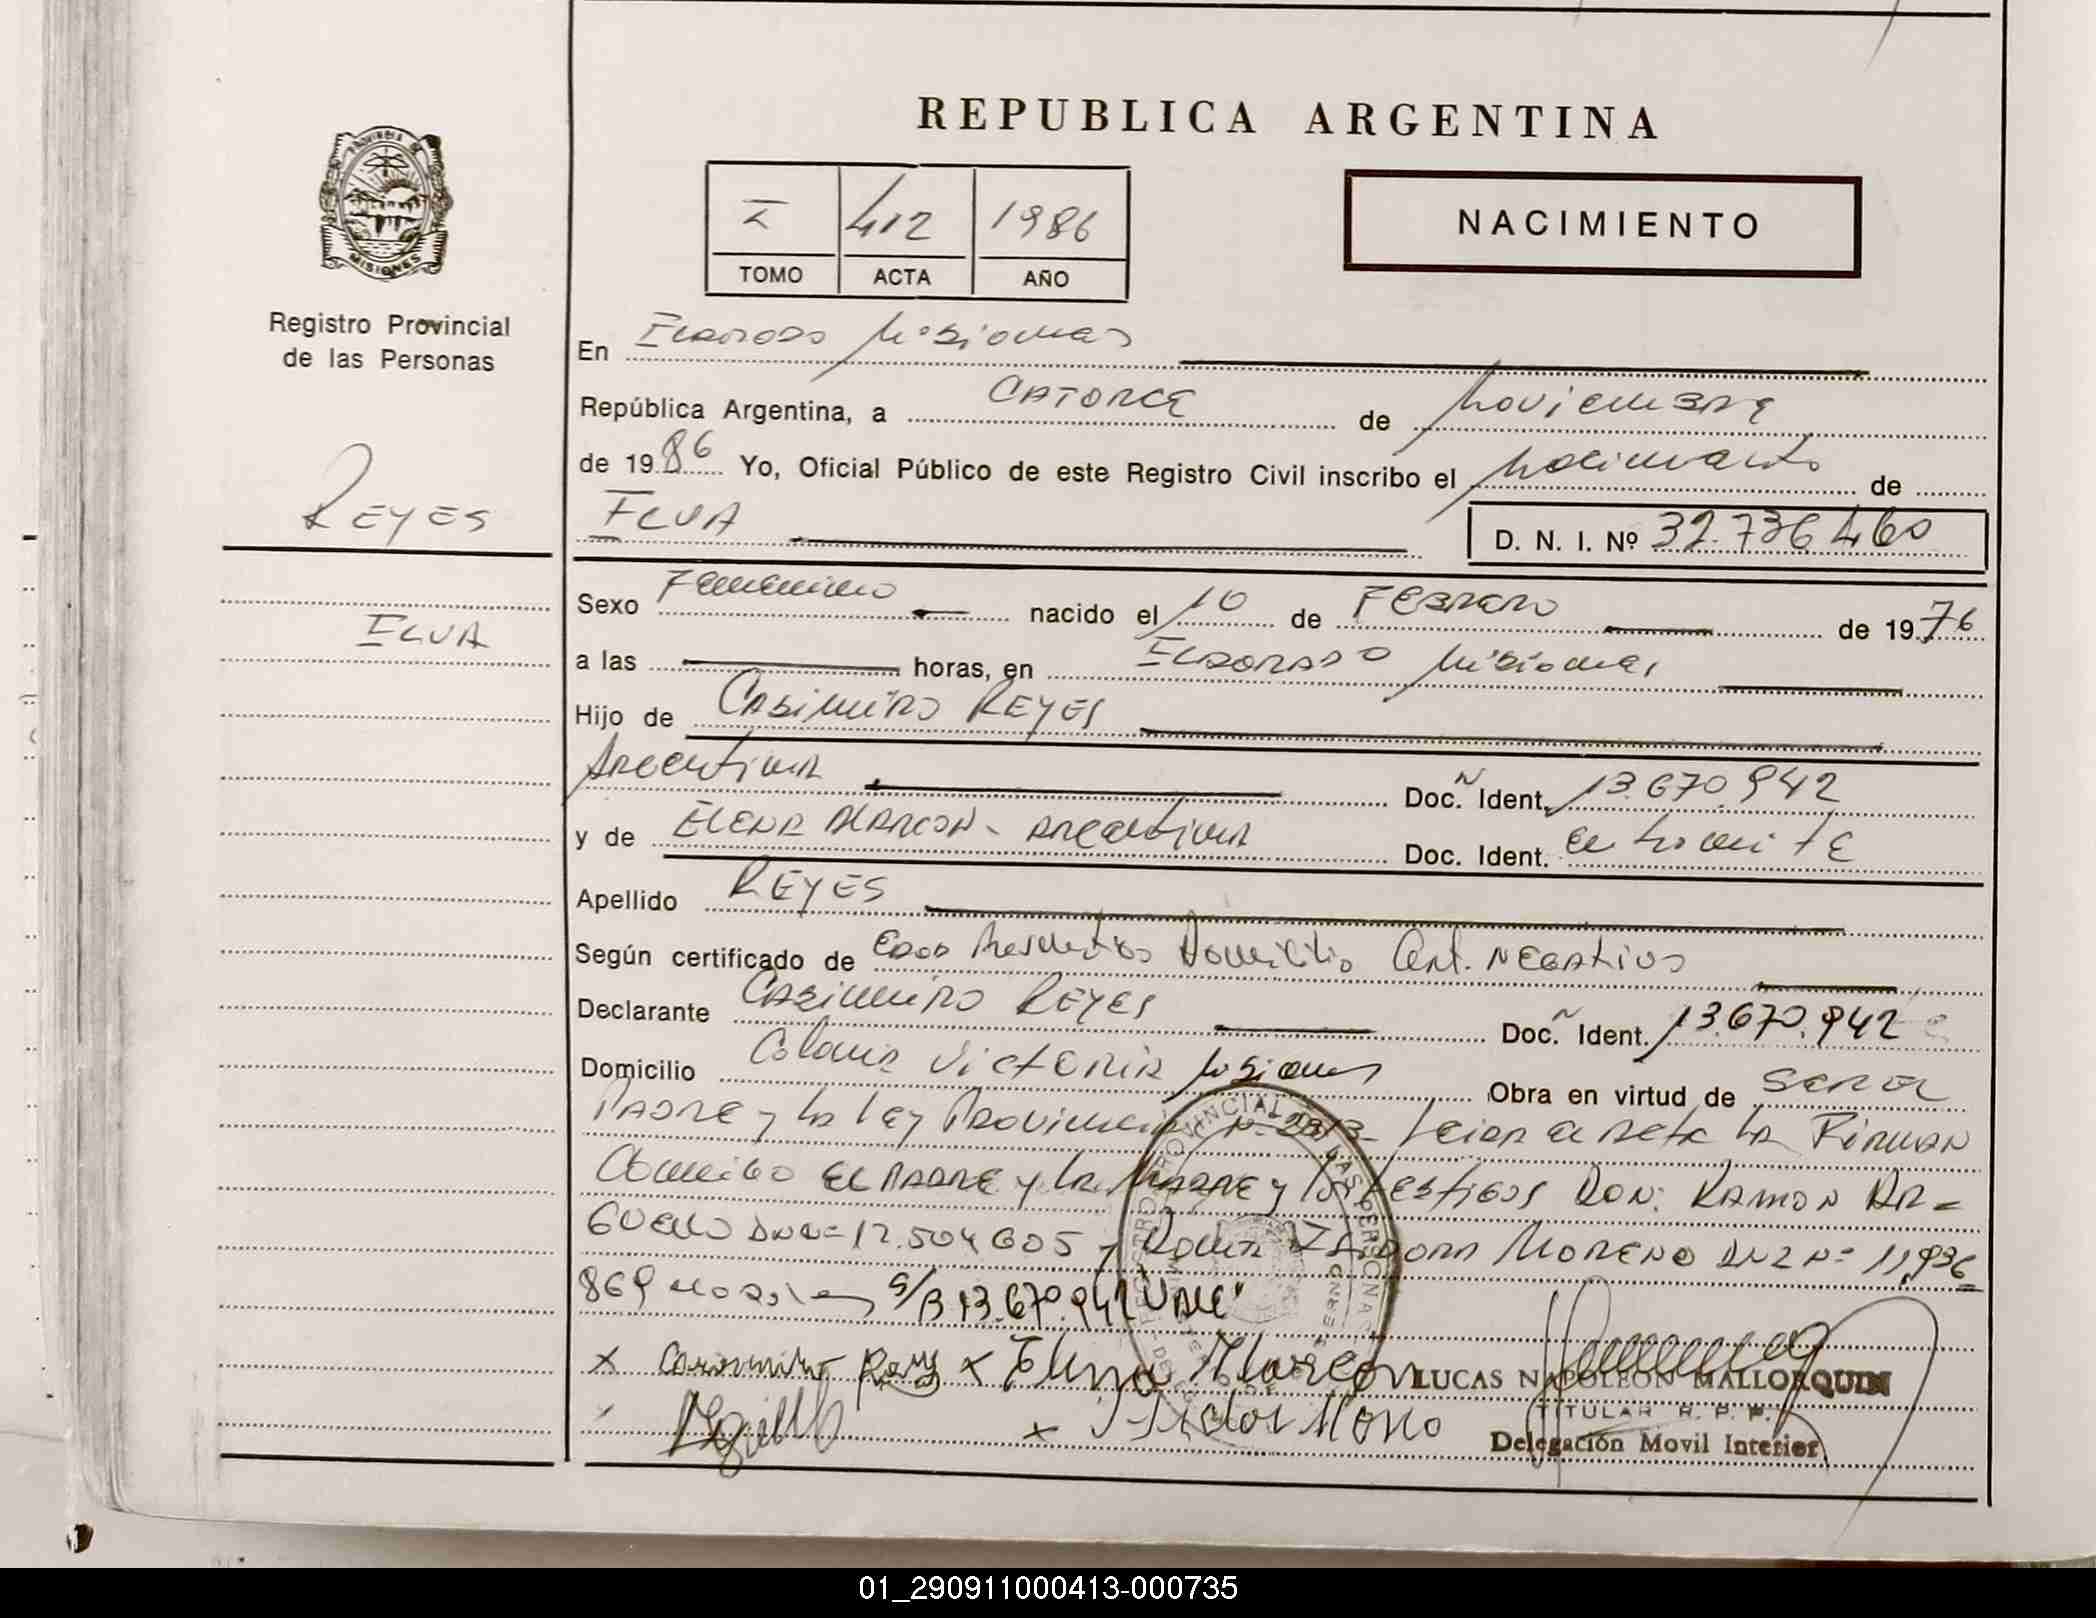 REPUBLICA ARGENTINA
I 412 1986
TOMO ACTA AÑO
NACIMIENTO
PROVINCIA DE
MISIONES
Registro Provincial
de las Personas
REYES
ELVA
En ELDORADO Misiones
República Argentina, a CATORCE de Noviembre
de 1986 Yo, Oficial Público de este Registro Civil inscribo el Nacimiento de
ELVA D. N. I. Nº 32.736.460
Sexo Femenino nacido el 10 de FEBRERO de 1976
a las horas, en ELDORADO Misiones
Hijo de CASIMIRO REYES
Argentina Doc. Ident. 13.670.942
y de ELENA ALARCON - ARGENTINA Doc. Ident. en tramite
Apellido REYES
Según certificado de Domicilio Cert. NEGATIVO
Declarante CASIMIRO REYES Doc. Ident. 13.670.942
Domicilio Colonia VICTORIA Misiones Obra en virtud de SER EL
PADRE y la Ley Provincial Nº 2813- Leida el Acta la FIRMAN
Conmigo EL PADRE y LA MADRE y los testigos DON: RAMON AR=
GUELLO DNI Nº 12.504.605 y Doña ISIDORA MORENO DNI Nº 11.936
869 S/B 13.670.942 "VALE"
x Reyes x Elena Alarcon
x Isidora Moreno
LUCAS NAPOLEON MALLORQUIN
TITULAR R. P. P.
Delegación Movil Interior
REGISTRO PROVINCIAL DE LAS PERSONAS
01_290911000413-000735